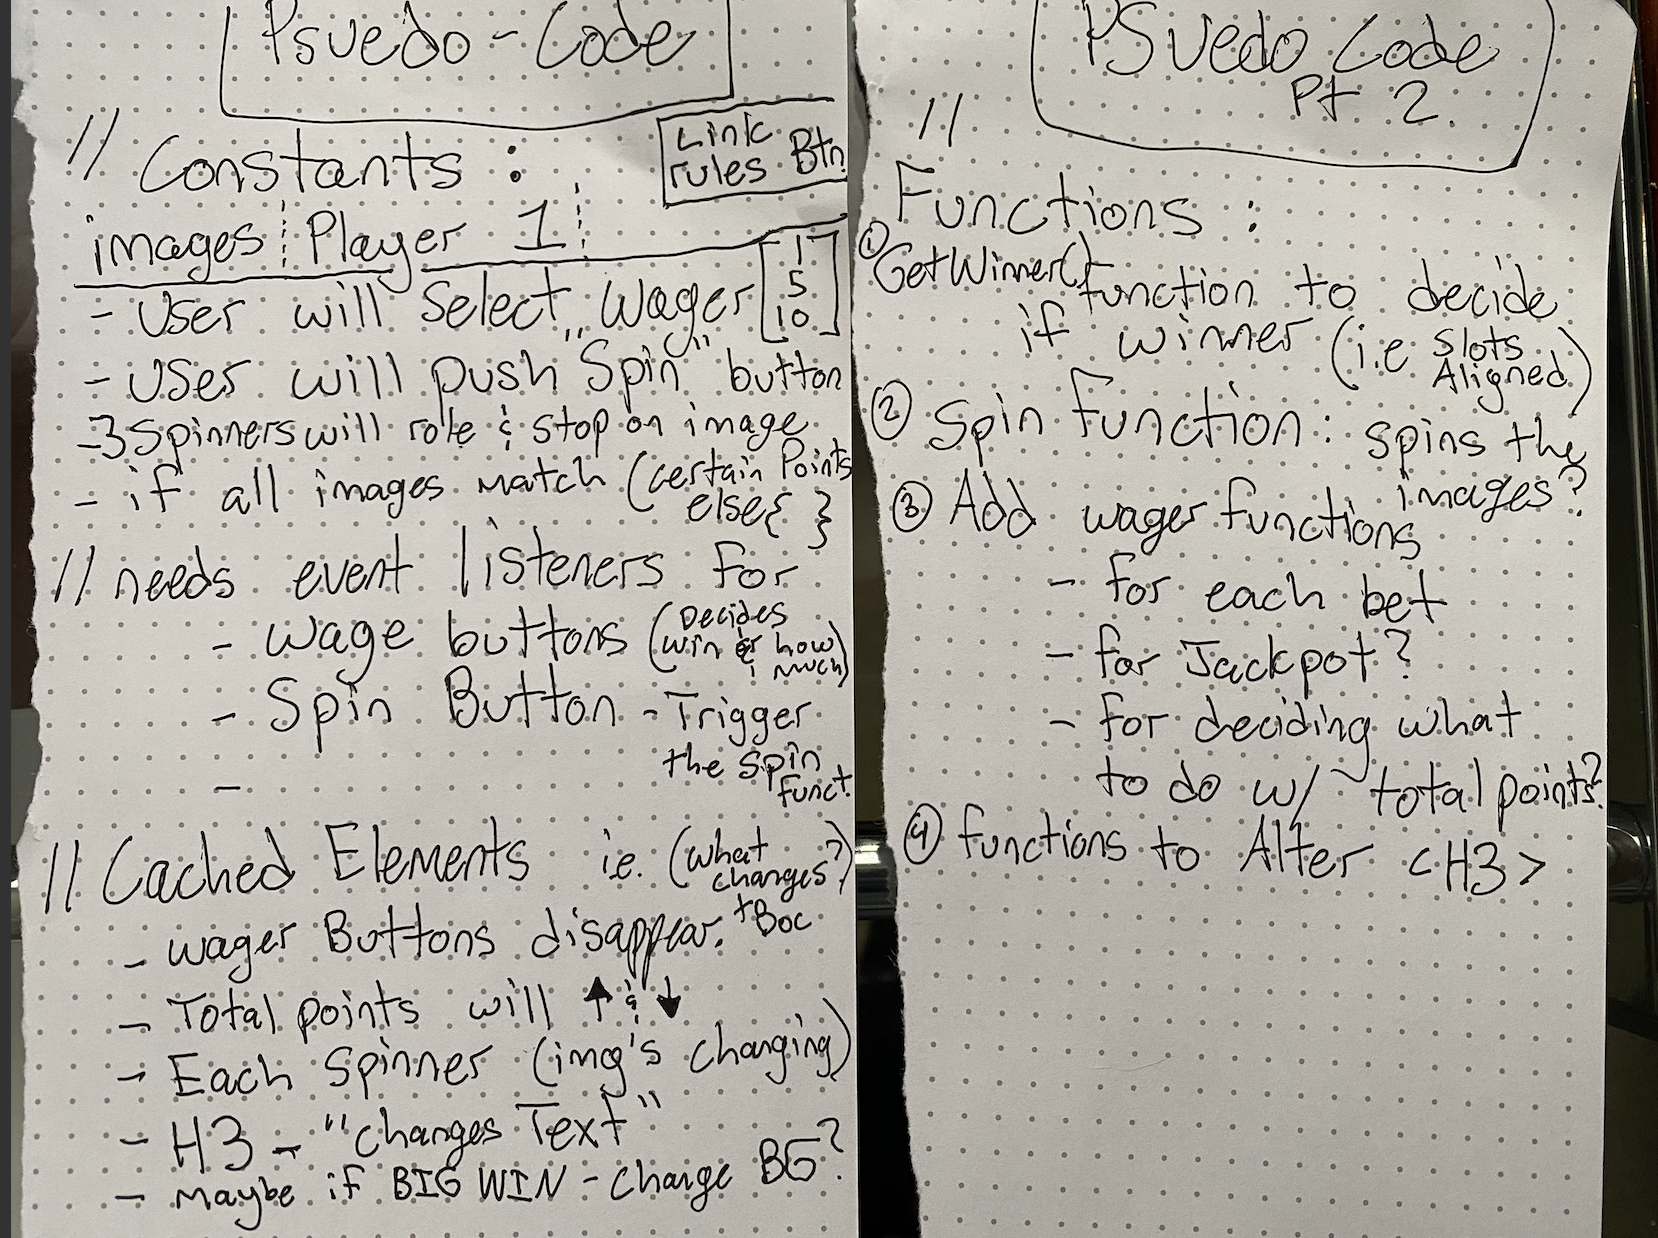 Psuedo-Code
// Constants :
Link
rules Btn
images Player 1
- User will Select Wager [1
5
10]
- User will push "Spin" button
- 3 Spinners will role & stop on image
- if all images match (certain Points
else{ }
// needs event listeners for
- wage buttons (Decides
win & how
much)
- Spin Button - Trigger
the spin
funct.
-
// Cached Elements ie. (what
changes?)
- wager Buttons disappear.
- Total points will ↑ & ↓
- Each Spinner (img's changing)
- H3 - "changes Text"
- Maybe if BIG WIN - change BG?
PSuedo Code
Pt 2.
//
Functions :
① GetWinner() function to decide
if winner (i.e Slots
Aligned)
② Spin function : spins the
images?
③ Add wager functions
- for each bet
- for Jackpot?
- for deciding what
to do w/ total points?
④ functions to Alter <H3>